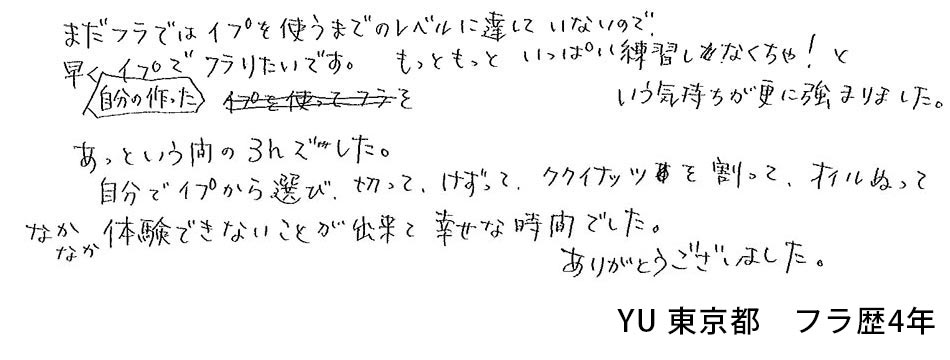 まだフラではイプを使うまでのレベルに達していないので、
早く自分の作ったイプでフラりたいです。 もっともっと いっぱい練習しなくちゃ！と
イプを使ってフラを いう気持ちが更に強まりました。
あっという間の3hズでした。
自分でイプから選び、切って、けずって、ククイナッツを割って、オイルぬって
なかなか体験できないことが出来て幸せな時間でした。
ありがとうございました。
YU 東京都 フラ歴4年